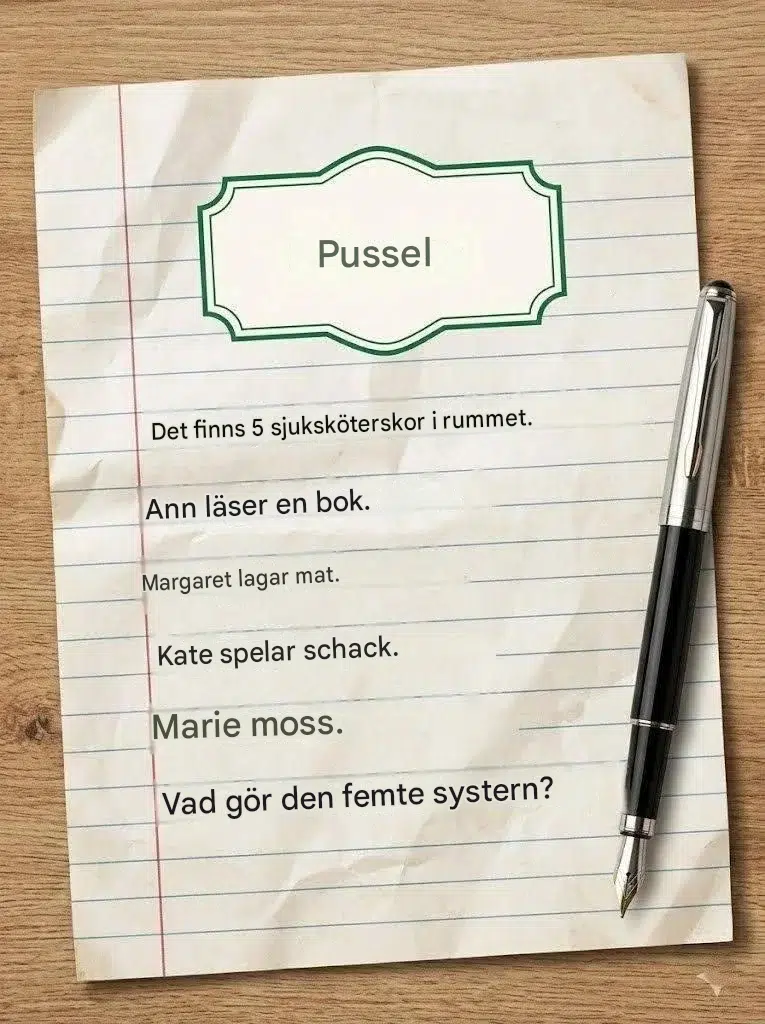 Pussel
Det finns 5 sjuksköterskor i rummet.
Ann läser en bok.
Margaret lagar mat.
Kate spelar schack.
Marie moss.
Vad gör den femte systern?